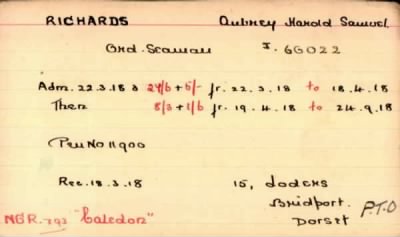 RICHARDS Aubrey Harold Samuel.
Ord. Seaman J. 66022
Adm. 22.3.18 @ 27/6 + 5/- fr. 22.3.18 to 18.4.18
Then 8/3 + 1/6 fr. 19.4.18 to 24.9.18
Pen No 11900
Rec. 18.3.18 15, Dodens
Bridport. P.T.O
N&R. 793 "Caledon" Dorset